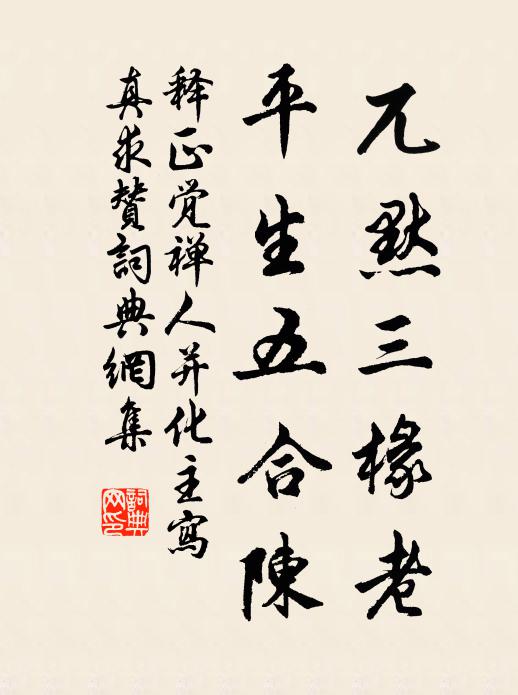 兀默三椽老
平生五合陳
释正觉禅人并化主寫
真求賛詞典網集
詞典网印